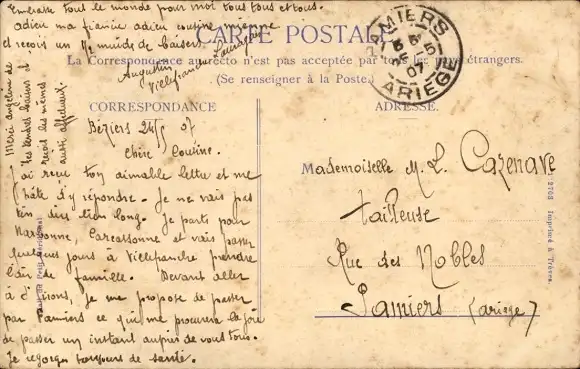 Embrasse tout le monde pour moi tous tous et tous.
Adieu ma fiancée adieu cousine mienne
et reçois un 1/2 muid de baisers.
Augustin
Villefranche Lauragais
CARTE POSTALE
La Correspondance au recto n'est pas acceptée par tous les pays étrangers.
(Se renseigner à la Poste.)
PAMIERS
07
ARIÈGE
CORRESPONDANCE
ADRESSE
Béziers 24/5 07
Chère Cousine.
J'ai reçu ton aimable lettre et me
hâte d'y répondre. Je ne vais pas
être long. Je parts pour
Narbonne, Carcassonne et vais passer
quelques jours à Villefranche prendre
l'air de famille. Devant aller
à me propose de passer
par Pamiers ce qui me procurera la joie
de passer un instant auprès de vous tous.
Je regorge toujours de santé.
Merci angeline de
tes tendres baisers et
reçois les mêmes
aussi affectueux.
Mademoiselle M. L. Cazenave
tailleuse
Rue des Nobles
Pamiers (Ariège)
2703 Imprimé à Trèves.